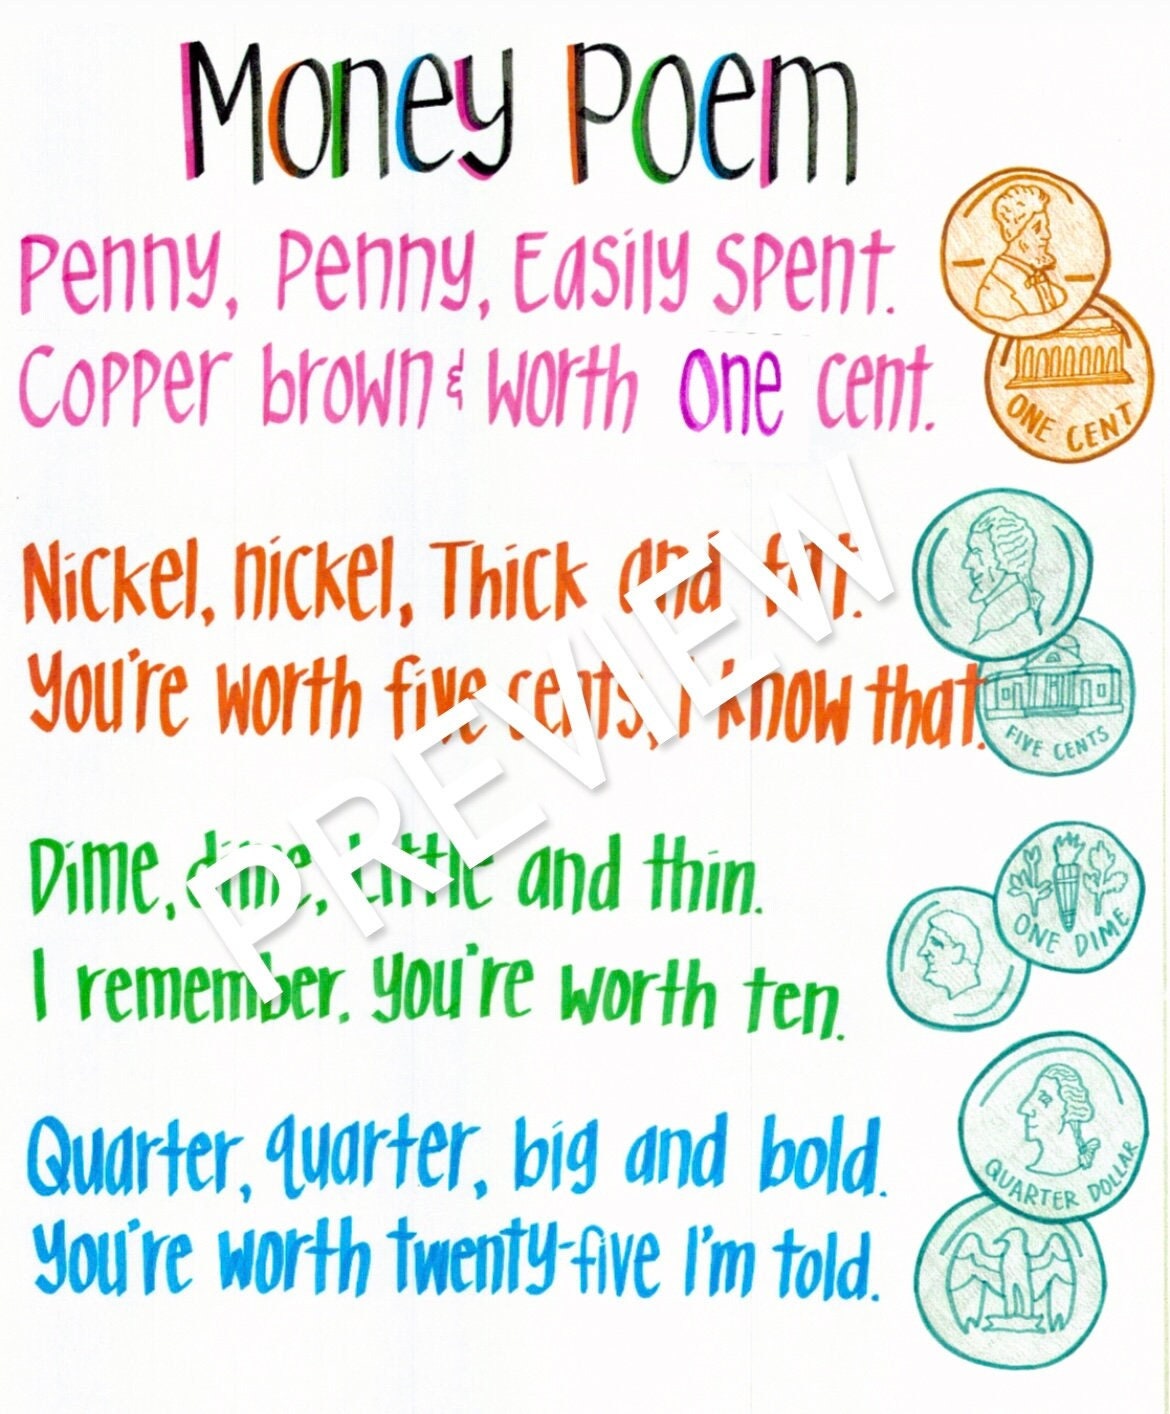 Money Poem
Penny, Penny, Easily Spent.
Copper brown & worth one cent.
ONE CENT
Nickel, nickel, Thick and fat.
You're worth five cents, I know that.
FIVE CENTS
Dime, dime, Little and thin.
I remember. You're worth ten.
ONE DIME
Quarter, quarter, big and bold.
You're worth twenty-five I'm told.
QUARTER DOLLAR
PREVIEW